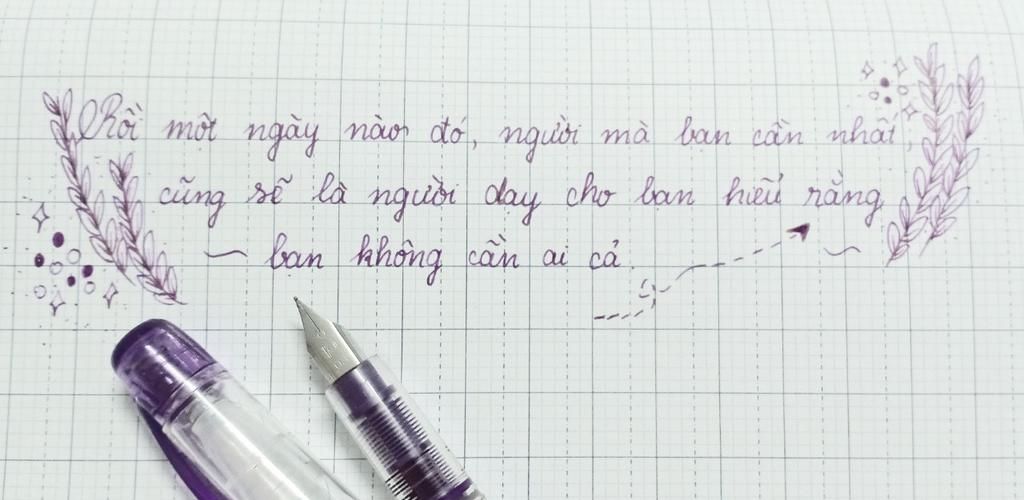 Rồi một ngày nào đó, người mà bạn cần nhất,
cũng sẽ là người dạy cho bạn hiểu rằng
~ bạn không cần ai cả. ~